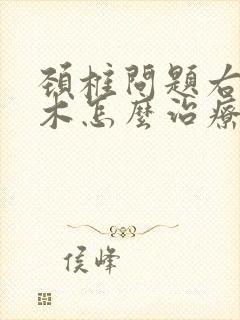 頸椎問題右
木怎麼治療
侯峰